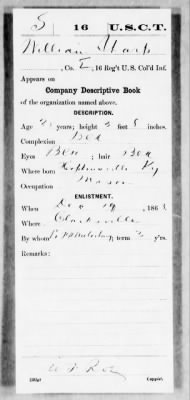 S 16 U.S.C.T.
William Sharp
, Co. I, 16 Reg't U. S. Col'd Inf.
Appears on
Company Descriptive Book
of the organization named above.
DESCRIPTION.
Age years; height 5 feet 8 inches.
Complexion Blk
Eyes Blk; hair Blk
Where born Hopkinsville Ky
Occupation Mason
ENLISTMENT.
When Dec 19, 1863.
Where Clarksville
By whom term 3 y'rs.
Remarks:
Copyist.